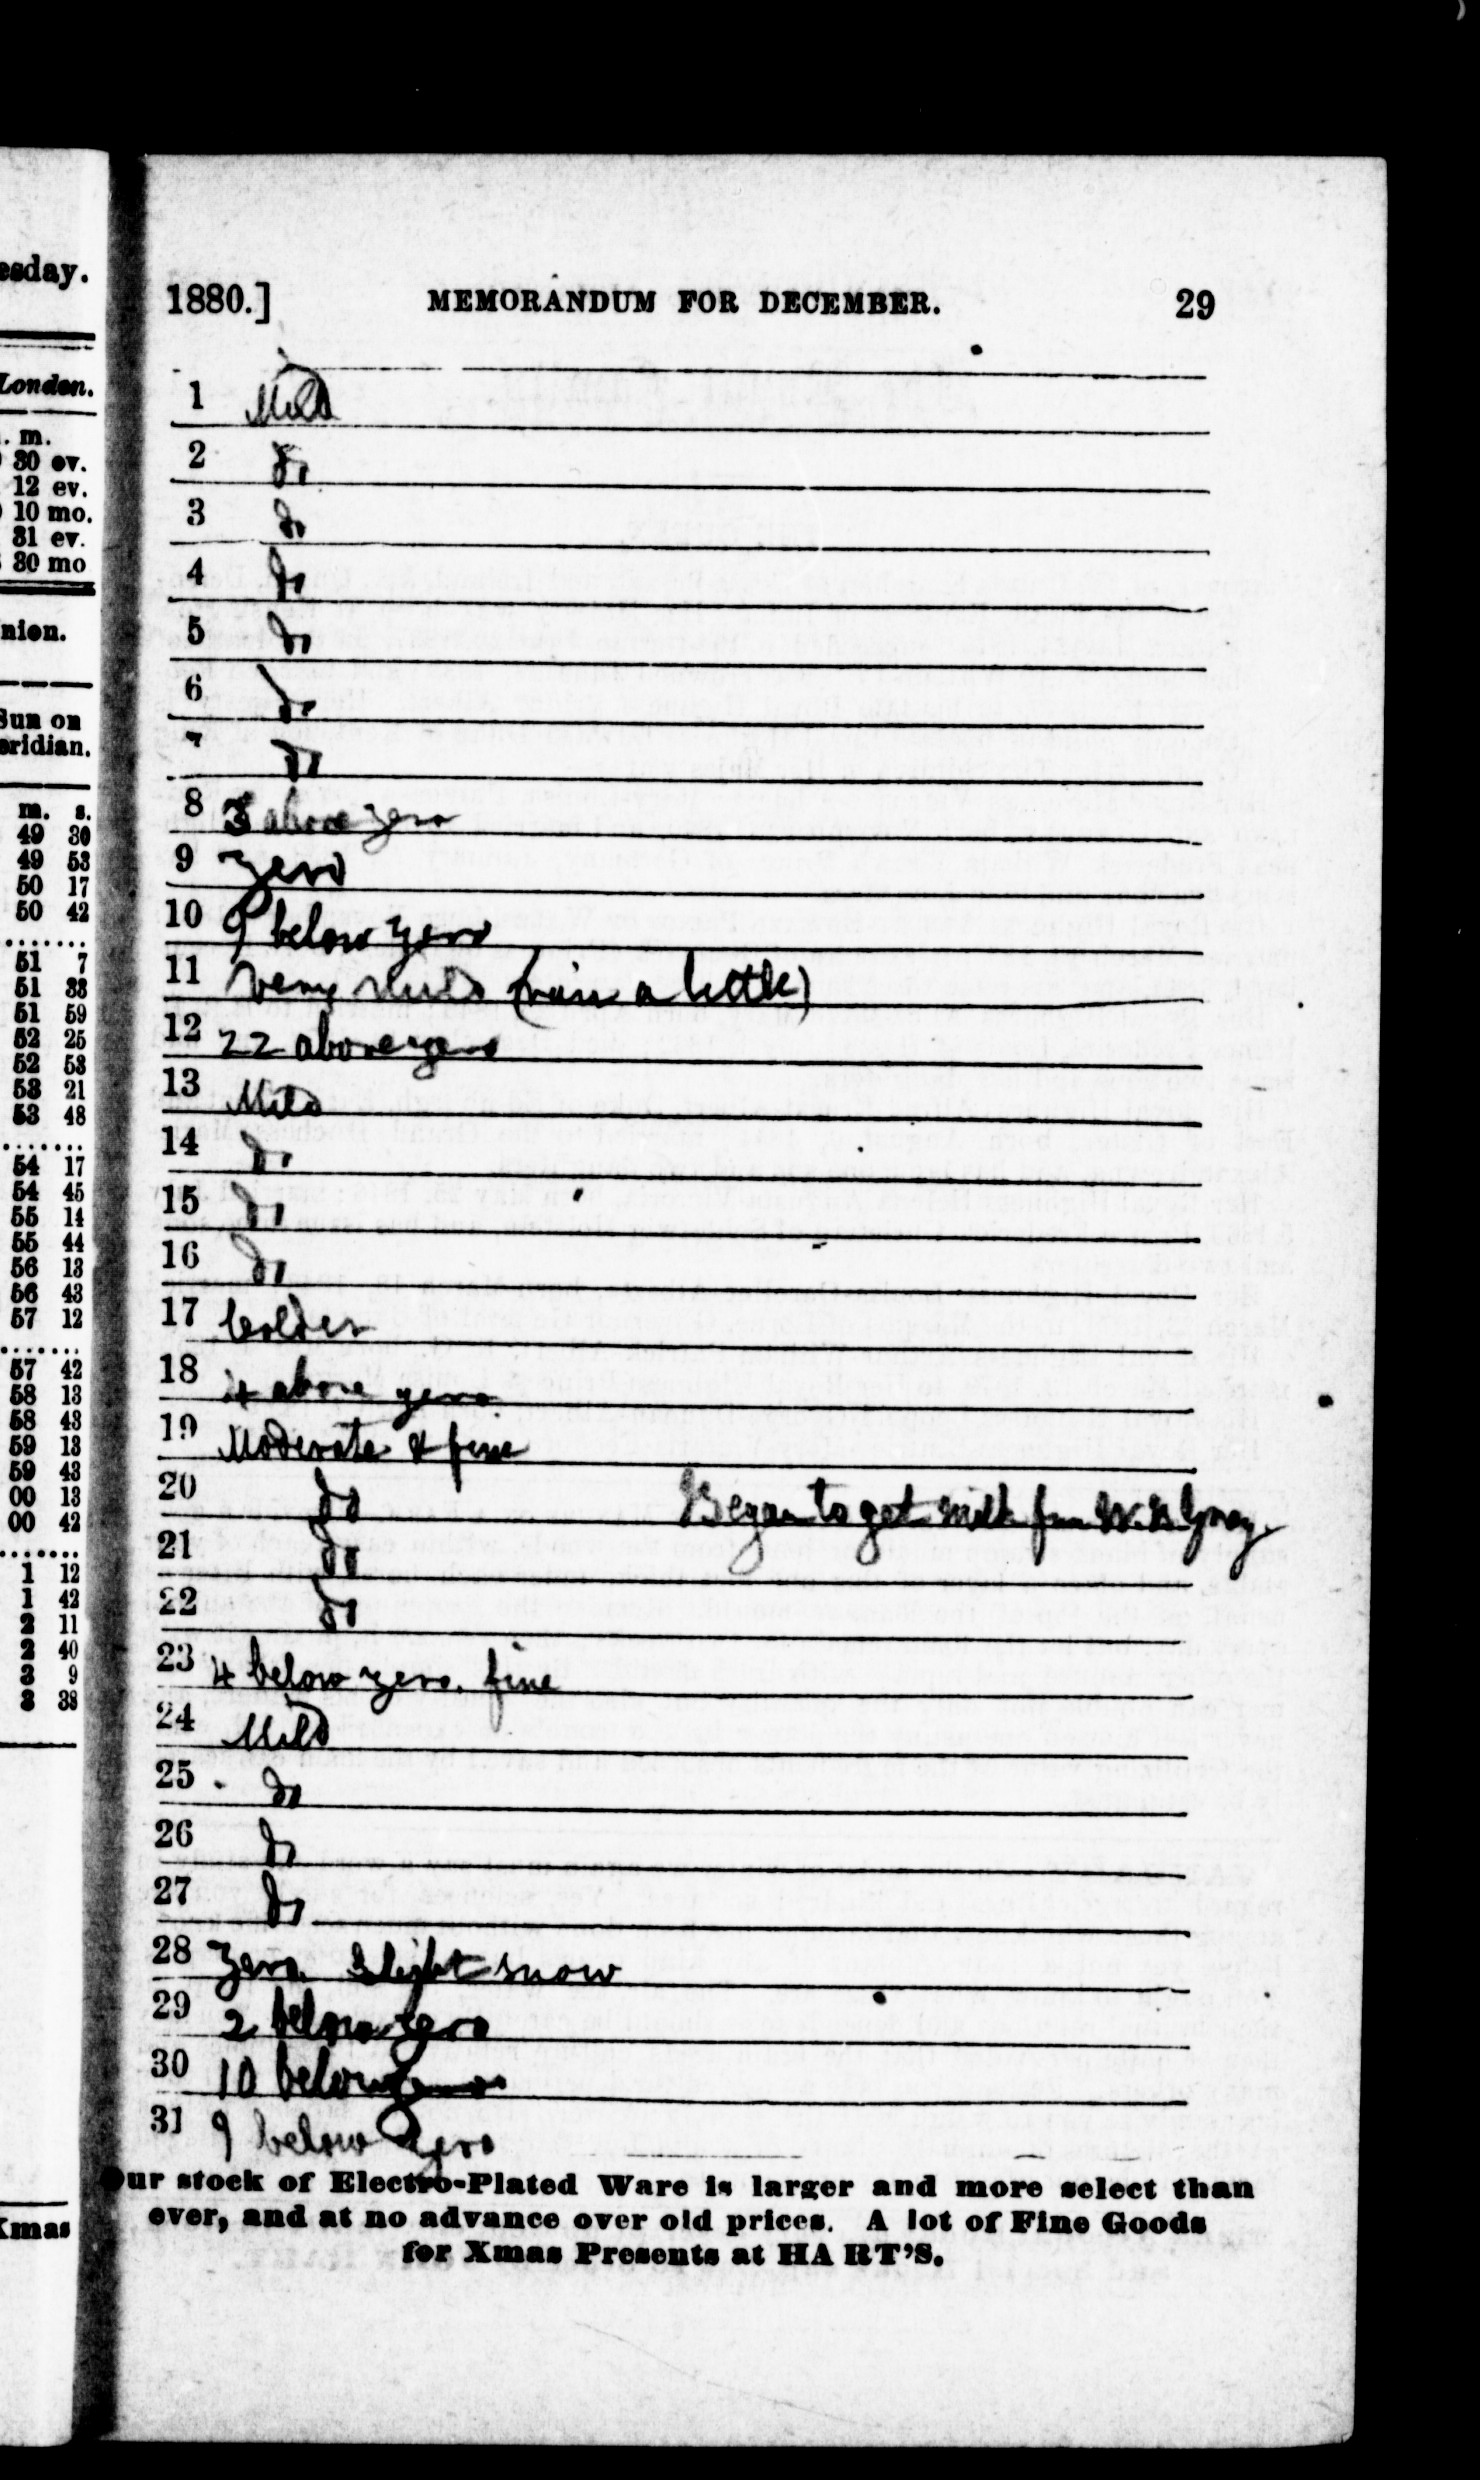 esday.
London.
. m.
30 ev.
12 ev.
10 mo.
31 ev.
30 mo
nion.
Sun on
eridian.
m. s.
49 30
49 53
50 17
50 42
........
51 7
51 33
51 59
52 25
52 53
53 21
53 48
........
54 17
54 45
55 14
55 44
56 13
56 43
57 12
........
57 42
58 13
58 43
59 13
59 43
00 13
00 42
........
1 12
1 42
2 11
2 40
3 9
3 38
Xmas
1880.] MEMORANDUM FOR DECEMBER. 29
1 Mild
2 do
3 do
4 do
5 do
6 do
7 do
8 3 above zero
9 Zero
10 9 below zero
11 Very mild (rain a little)
12 22 above zero
13 Mild
14 do
15 do
16 do
17 Colder
18 4 above zero
19 Moderate & fine
20 do Began to get milk from W. Gray
21 do
22 do
23 4 below zero. fine
24 Mild
25 do
26 do
27 do
28 Zero. Slight snow
29 2 below zero
30 10 below zero
31 9 below zero
Our stock of Electro-Plated Ware is larger and more select than
ever, and at no advance over old prices. A lot of Fine Goods
for Xmas Presents at HART'S.